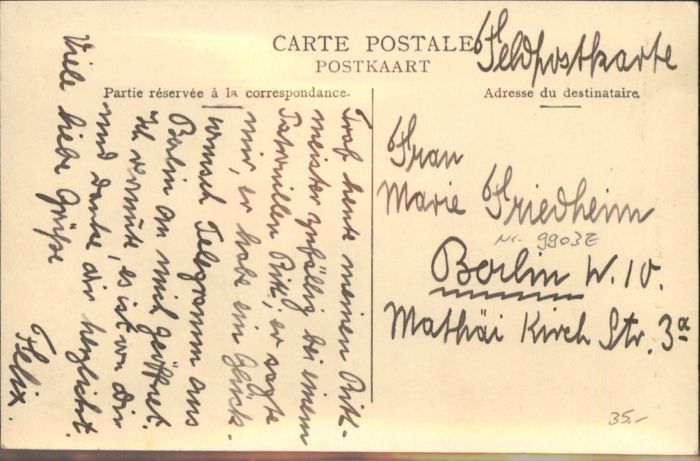 CARTE POSTALE
POSTKAART
Feldpostkarte
Partie réservée à la correspondance.
Adresse du destinataire.
Traf heute meinen Ritt-
meister zufällig bei einem
Patrouillen Ritt, er sagte
mir, er habe ein Glück-
wunsch Telegramm aus
Berlin an mich geöffnet.
Ich vermute, es ist von dir
und danke dir herzlichst.
Viele liebe Grüße
Felix.
Frau
Marie Friedheim
Nr. 9903E
Berlin W. 10.
Mathäi Kirch Str. 3a
35.-